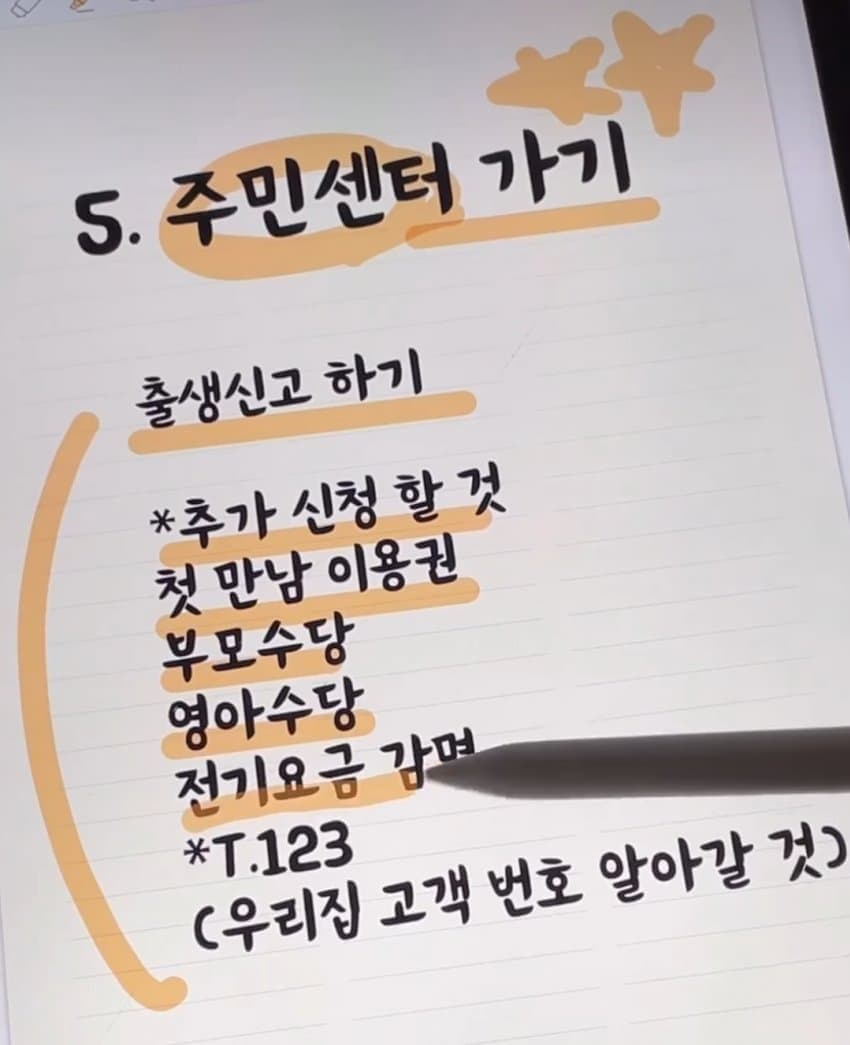 5. 주민센터 가기
출생신고 하기
*추가 신청 할 것
첫 만남 이용권
부모수당
영아수당
전기요금 감면
*T.123
(우리집 고객 번호 알아갈 것)